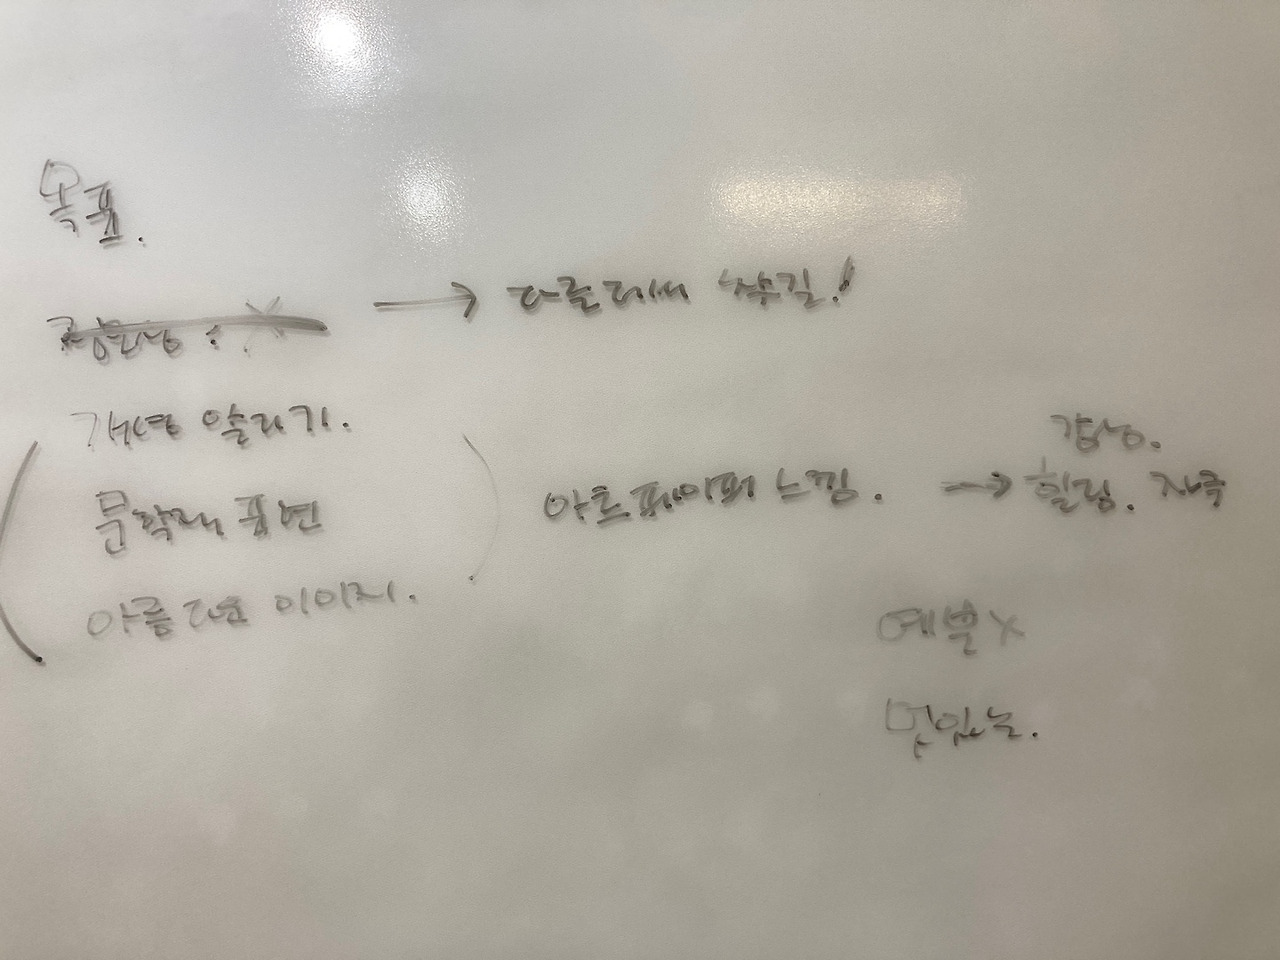 목표.
→ 다른데서 찾길!
개념 알리기.
문학적 표현
아름다운 이미지.
아트페이퍼 느낌. →
감성.
힐링. 자극
예쁜 X
멋있는.